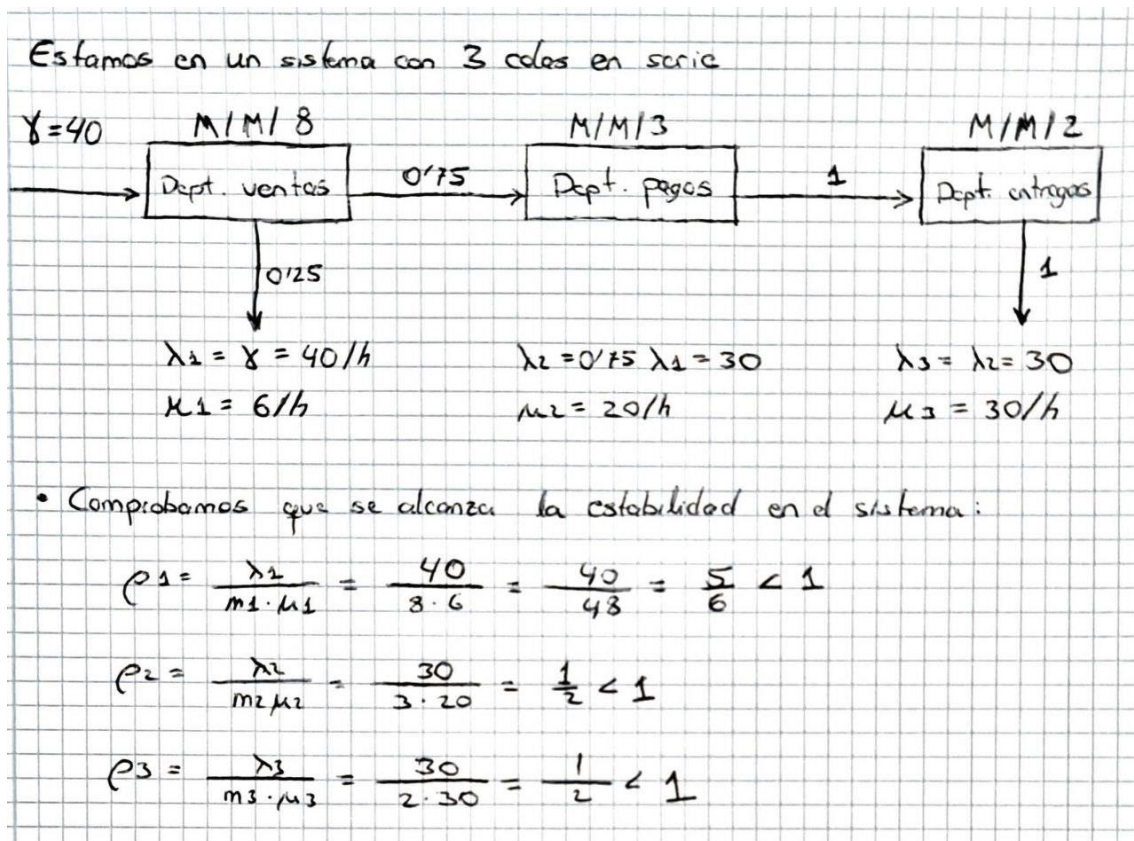 Estamos en un sistema con 3 colas en serie
γ=40 M/M/8 M/M/3 M/M/2
Dept. ventas 0'75 Dept. pagos 1 Dept. entregas
0'25 1
λ1 = γ = 40/h λ2 = 0'75 λ1 = 30 λ3 = λ2 = 30
μ1 = 6/h μ2 = 20/h μ3 = 30/h
• Comprobamos que se alcanza la estabilidad en el sistema:
ρ1 = λ1/(m1·μ1) = 40/(8·6) = 40/48 = 5/6 < 1
ρ2 = λ2/(m2μ2) = 30/(3·20) = 1/2 < 1
ρ3 = λ3/(m3·μ3) = 30/(2·30) = 1/2 < 1